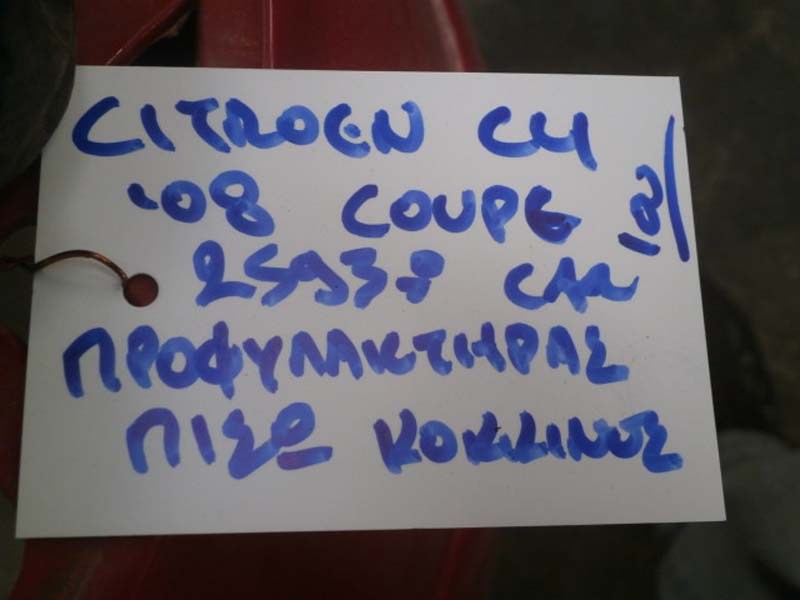 CITROEN C4
'08 COUPE 100/
25937 CAR
ΠΡΟΦΥΛΑΚΤΗΡΑΣ
ΠΙΣΩ ΚΟΚΚΙΝΟΣ